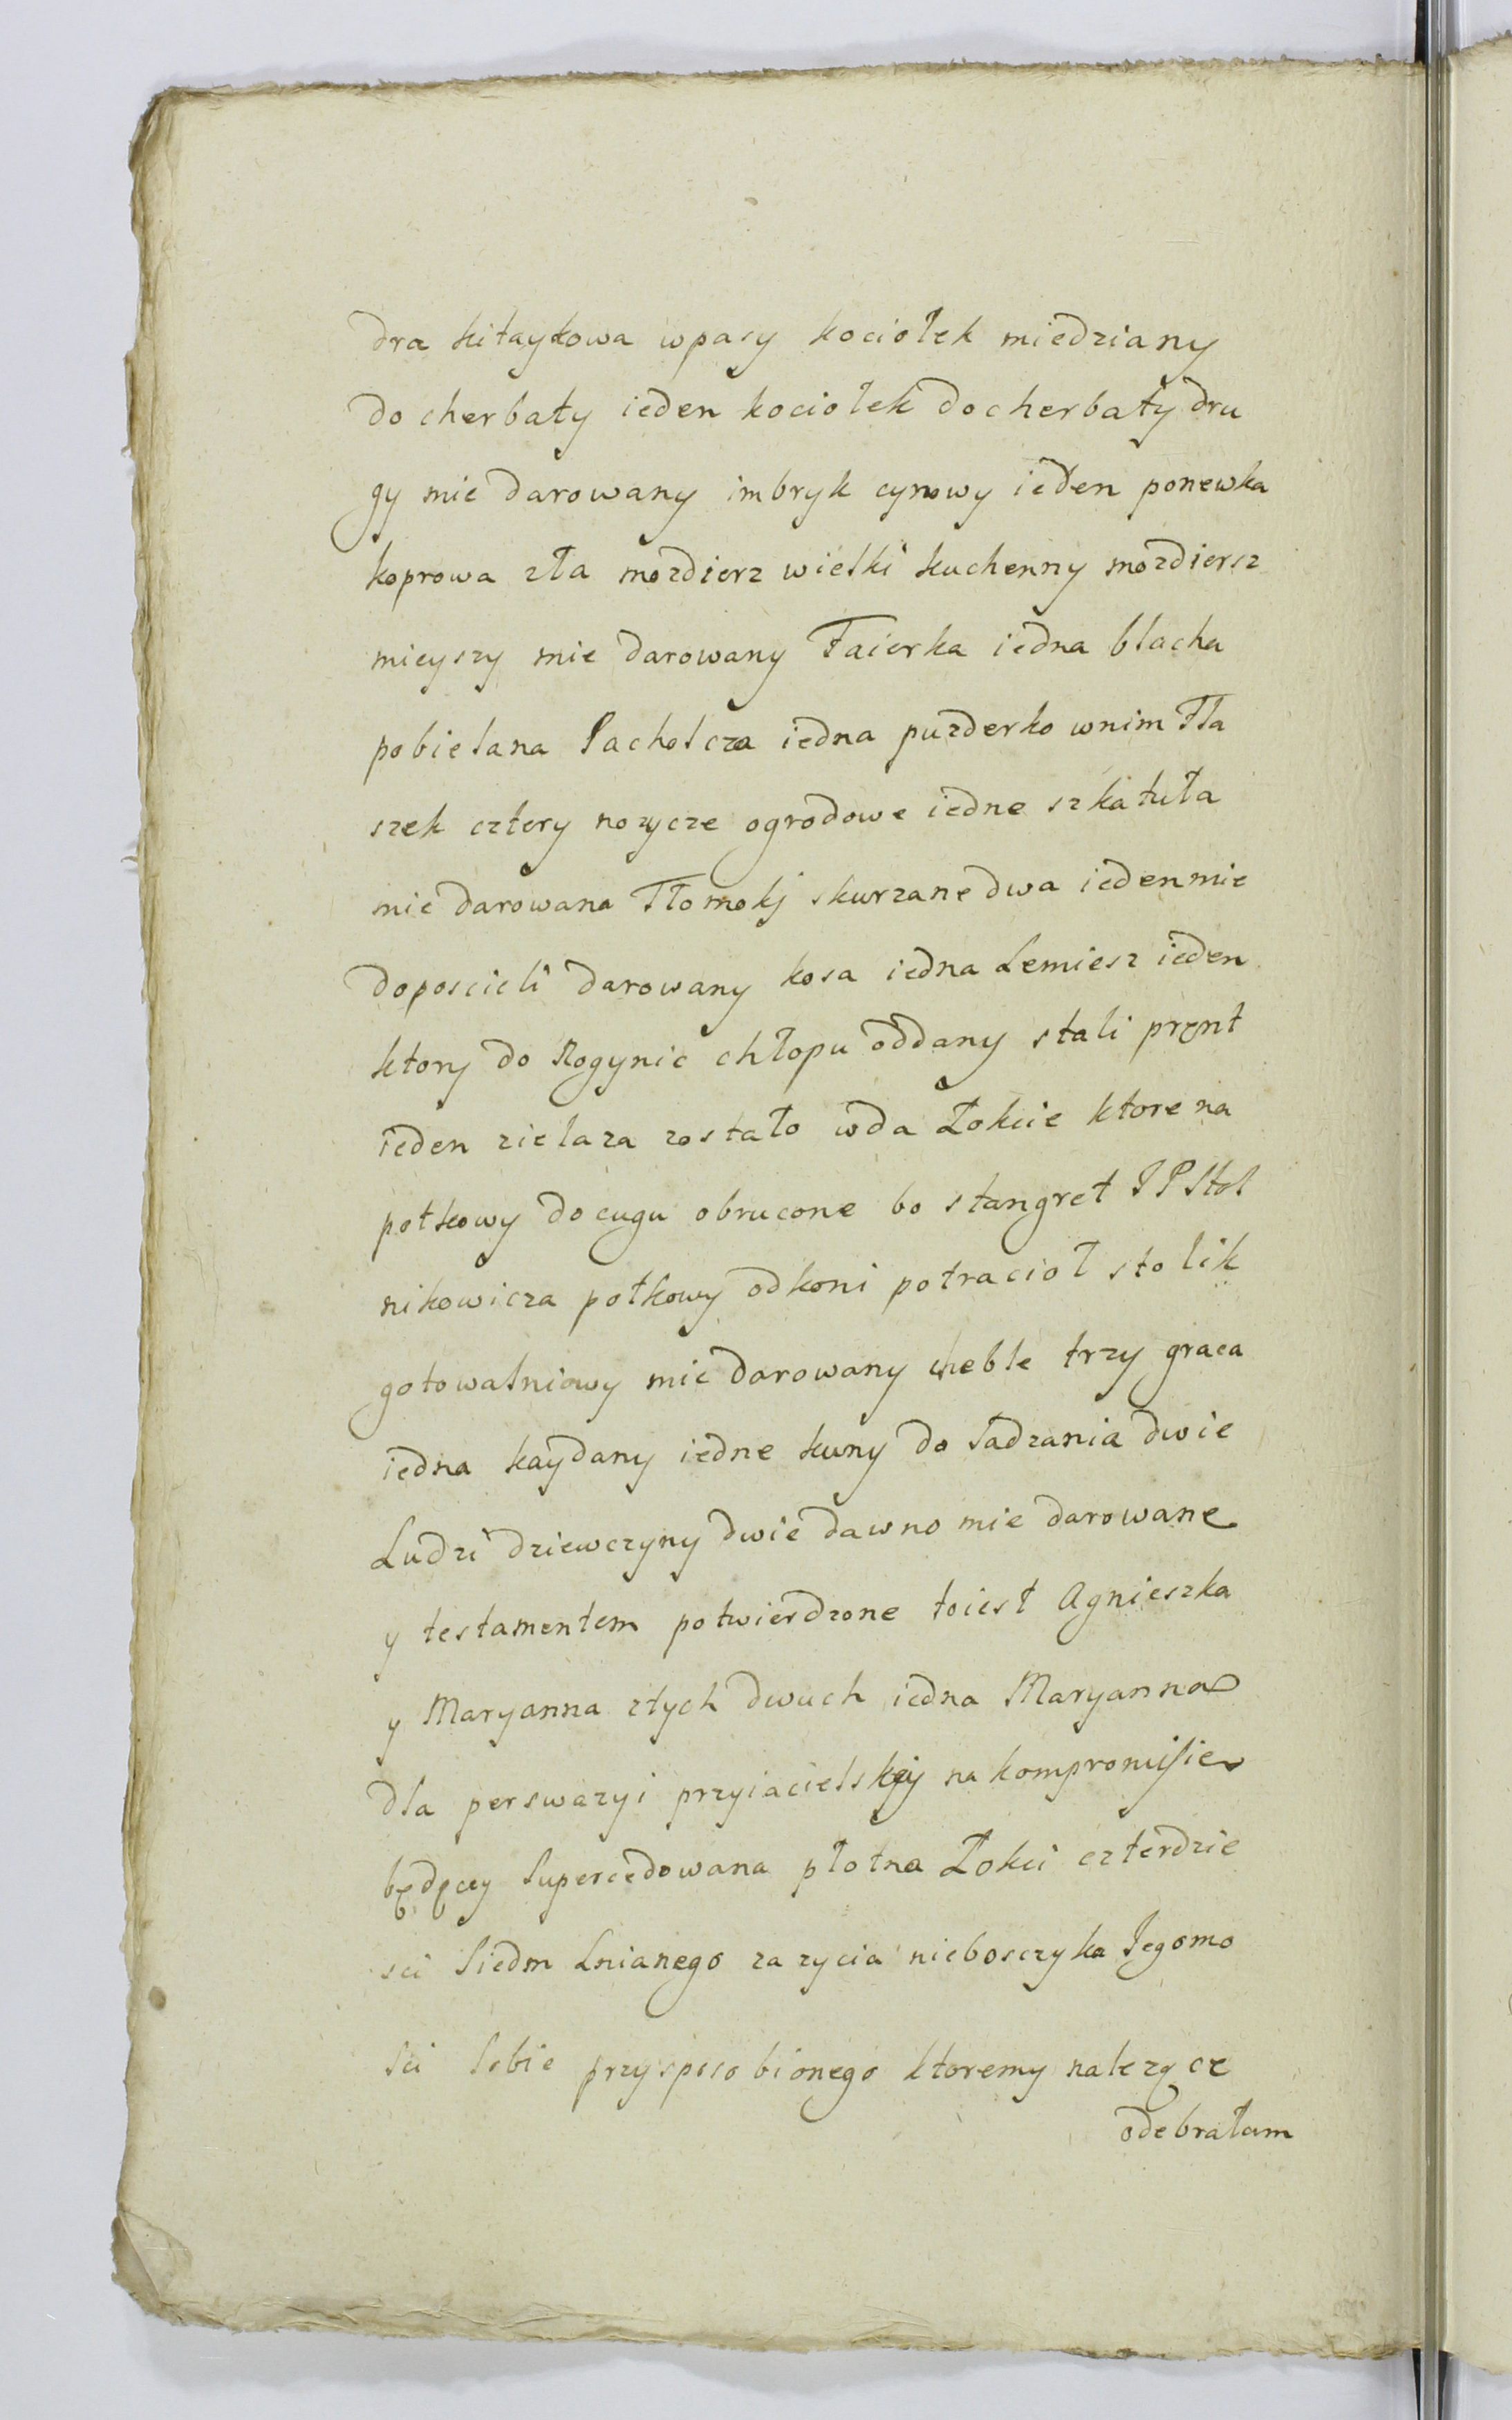 dra kitaykowa wpasy kociołek miedziany
do cherbaty ieden kociołek do cherbaty dru
gy mie darowany imbryk cynowy ieden ponewka
koprowa zła mozdierz wielki kuchenny mozdiersz
mieyszy mie darowany Faierka iedna blacha
pobielana Sacholcza iedna puzderko wnim Fla
szek cztery nozycze ogrodowe iedne szkatuła
mie darowana Tłomokj skurzane dwa ieden mie
doposcieli darowany kosa iedna Lemiesz ieden
ktory do Rogynic chłopu oddany stali pręnt
ieden zielaza zostało wda Łokcie ktore na
potkowy do cugu obrucone bo stangret JP Stol
nikowicza potkowy odkoni potracioł stolik
gotowalniowy mie darowany cheble trzy graca
iedna kaydany iedne kuny do sadzania dwie
Ludzi dziewczyny dwie dawno mie darowane
y testamentem potwierdzone toiest Agnieszka
y Maryanna ztych dwuch iedna Maryanna
dla perswazyi przyiacielskiey na kompromisie
będęcey supercedowana płotna Łokci czterdzie
sci siedm Lnianego za zycia nieboszczyka Jegomo
sci sobie przysposobionego ktoremy nalezące
odebrałam